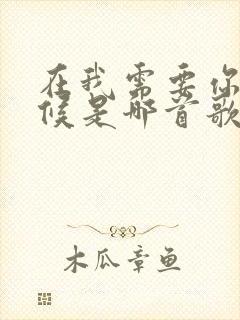 在我需要你
候是哪首歌
木瓜章鱼